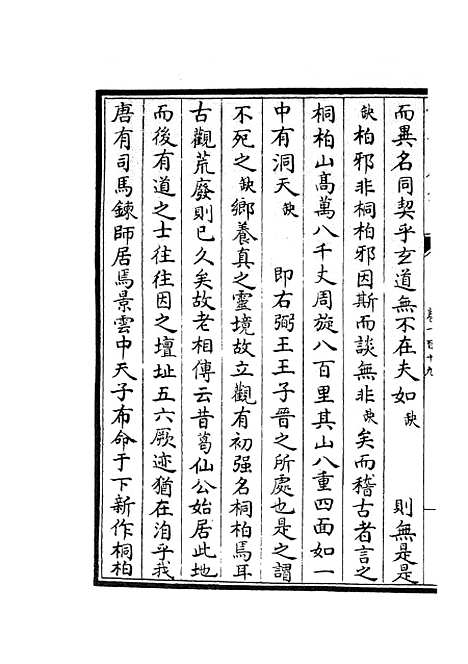 而異名同契乎玄道無不在夫如缺則無是是
缺柏邪非桐柏邪因斯而談無非缺矣而稽古者言之
桐柏山高萬八千丈周旋八百里其山八重四面如一
中有洞天缺即右弼王王子晉之所處也是之謂
不死之缺鄉養真之靈境故立觀有初强名桐柏焉耳
古觀荒廢則已久矣故老相傳云昔葛仙公始居此地
而後有道之士往往因之壇址五六厥迹猶在洎乎我
唐有司馬鍊師居焉景雲中天子布命于下新作桐柏
卷一百十九